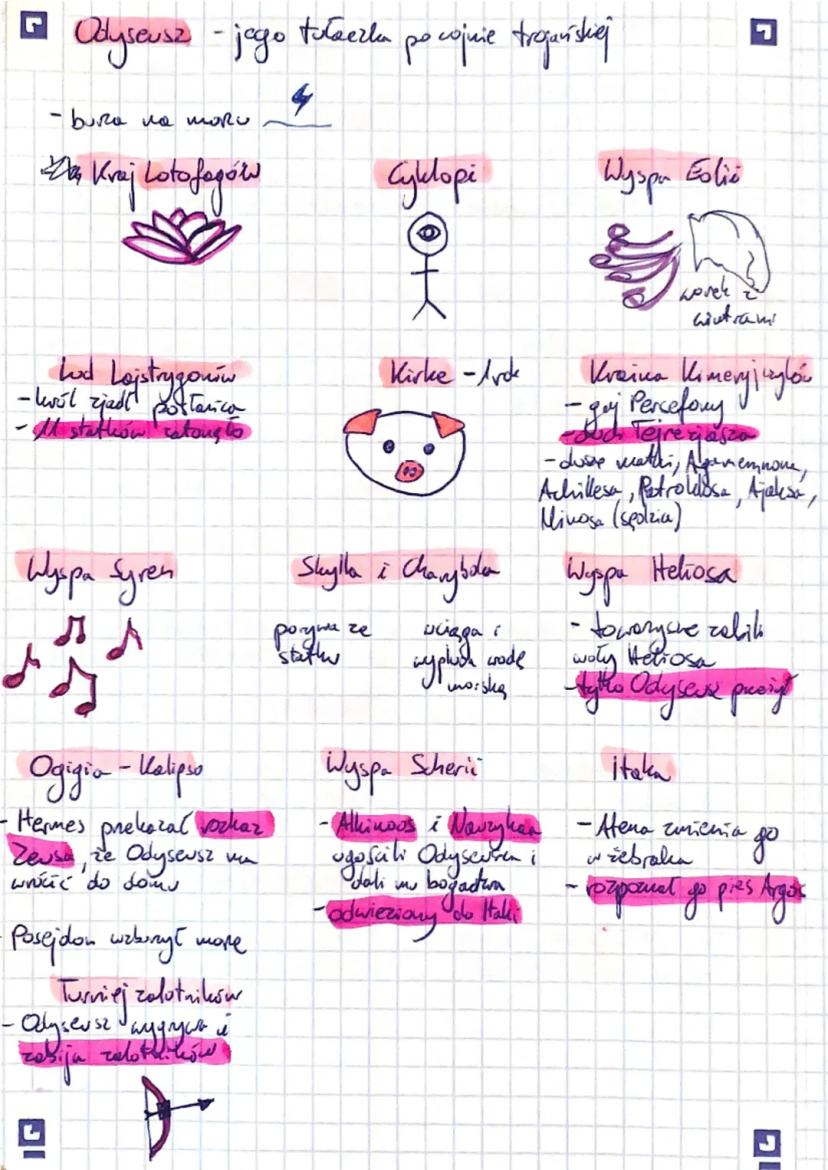 Odyseusz - jego tułaczka po wojnie trojańskiej
- burza na morzu
Kraj Lotofagów
Cyklopi
Wyspa Eolii
worek z
wiatrami
Lud Lajstrygonów
- król zjadł posłańca
- 11 statków zatonęło
Kirke - 1 rok
Kraina Kimeryjczyków
- gaj Persefony
- duch Tejrezjasza
- dusze matki, Agamemnona,
Achillesa, Patroklosa, Ajaksa,
Minosa (sędzia)
Wyspa Syren
Skylla i Charybda
porywa ze
statku
wciąga i
wypluwa wodę
morską
Wyspa Heliosa
- towarzysze zabili
woły Heliosa
- tylko Odyseusz przeżył
Ogigia - Kalipso
- Hermes przekazał rozkaz
Zeusa, że Odyseusz ma
wrócić do domu
- Posejdon wzburzył morze
Wyspa Scherii
- Alkinoos i Nauzykaa
ugościli Odyseusza i
dali mu bogactwa
- odwieziony do Itaki
Itaka
- Atena zmienia go
w żebraka
- rozpoznał go pies Argos
Turniej zalotników
- Odyseusz wygrywa i
zabija zalotników